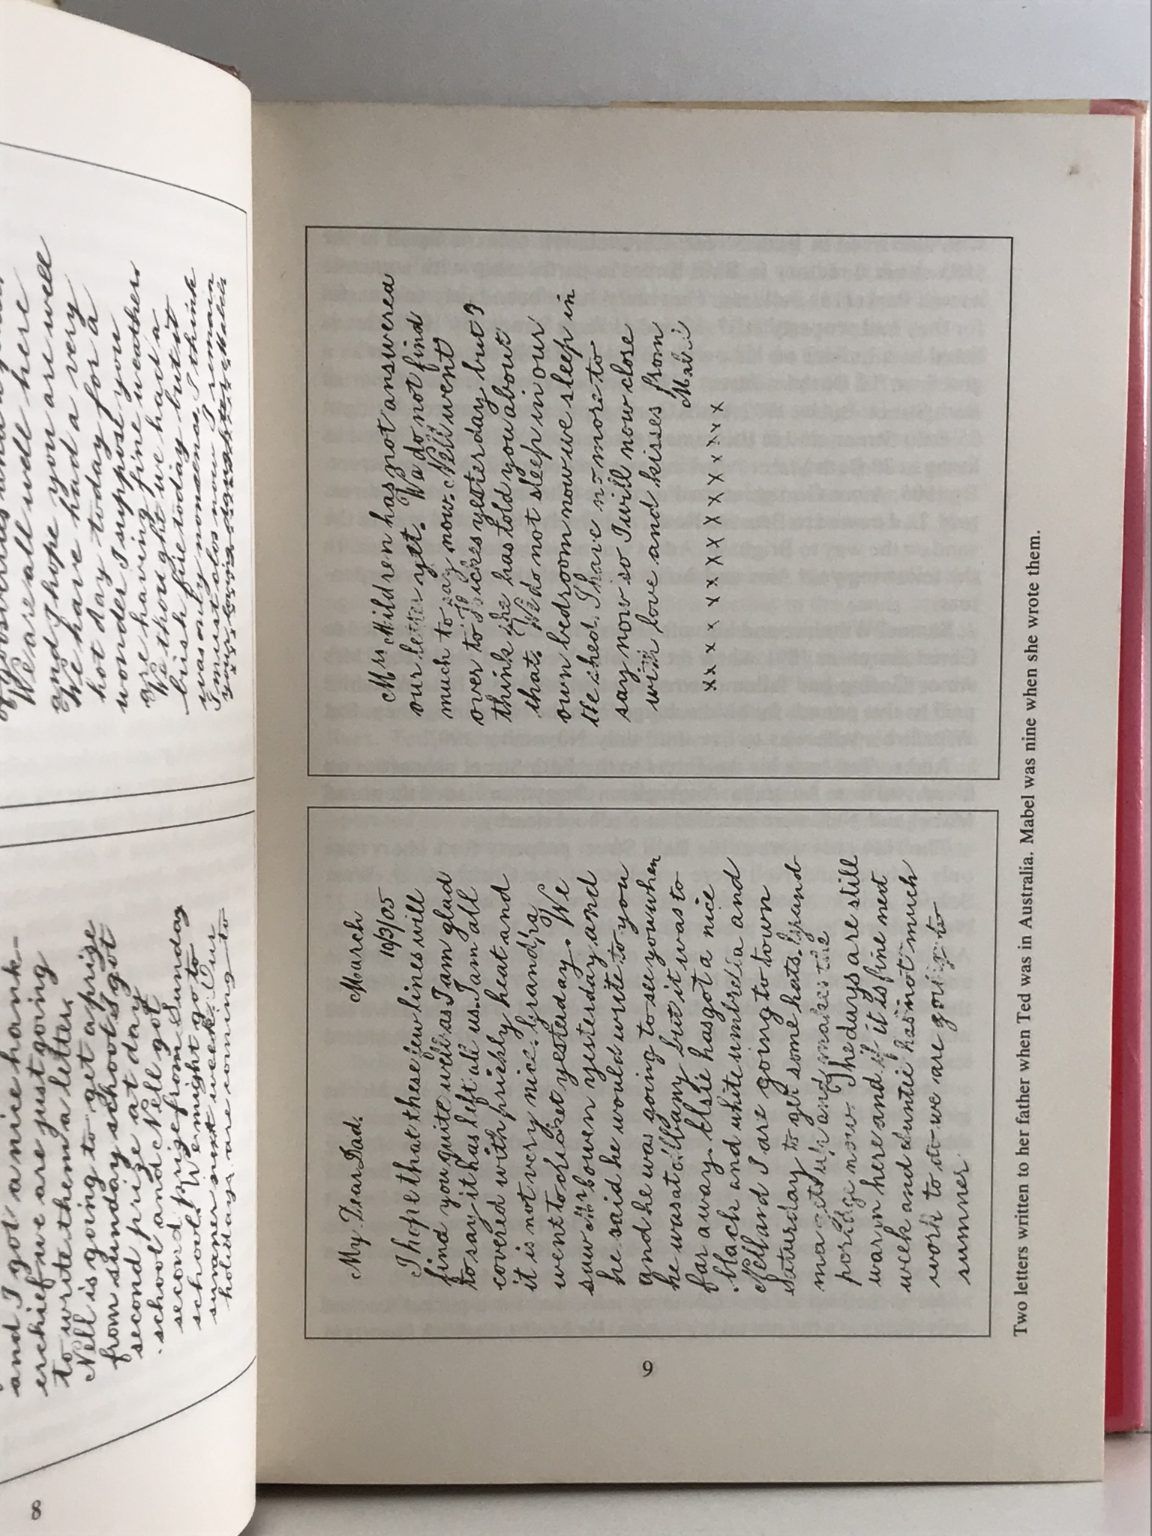 and I got a nice hank-
erchief we are just going
to write them a letter.
Nell is going to get a prize
from sunday school. I got
second prize at day
school and Nell got
second prize from Sunday
school. We might go to
sumner next week. Our
holidays are coming to
We are all well here
and I hope you are well
We have had a very
hot day today for a
wonder I suppost you
are having fine weather
We thought we had a
bis shake today but it
was only nonsence I think
I must close now I remain
8
My Dear Dad.
March
19/3/05
I hope that these few lines will
find you quite well as I am glad
to say it has left all us. I am all
covered with prickly heat and
it is not very nice. Grandpa
went to cricket yestaday. We
saw Mr bowen yisterday and
he said he would write to you
and he was going to see you when
he was at albany but it was to
far away. Elsie has got a nice
black and white umbrella and
Nell and I are going to town
Saturday to get some hats. Grand
ma gets up and makes the
poridge now. The days are still
warm here and if it is fine next
week and auntie has not much
work to do we are going to
sumner.
Mrs Mildren has not answered
our letter yett. We do not find
much to say now. Nell went
over to dickes yesterday but I
think she has told you about
that. We do not sleep in our
own bedroom now we sleep in
the shed. I have no more to
say now so I will now close
with love and kisses from
Mabel
x x x x x x x x x x x x
9
Two letters written to her father when Ted was in Australia. Mabel was nine when she wrote them.